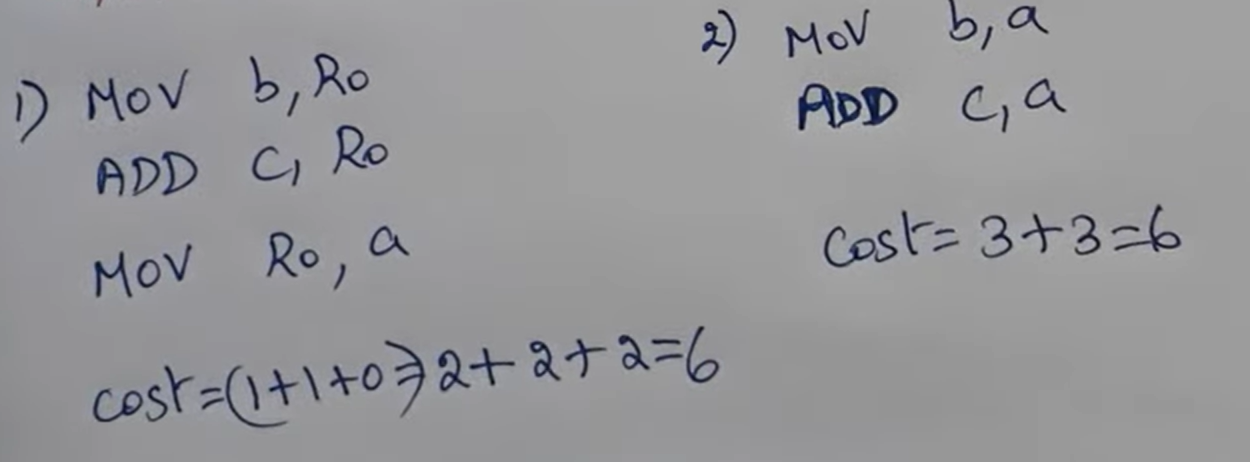 1) MOV b, R0
ADD C, R0
MOV R0, a
cost=(1+1+0)⇒2+2+2=6
2) MOV b, a
ADD C, a
Cost= 3+3=6